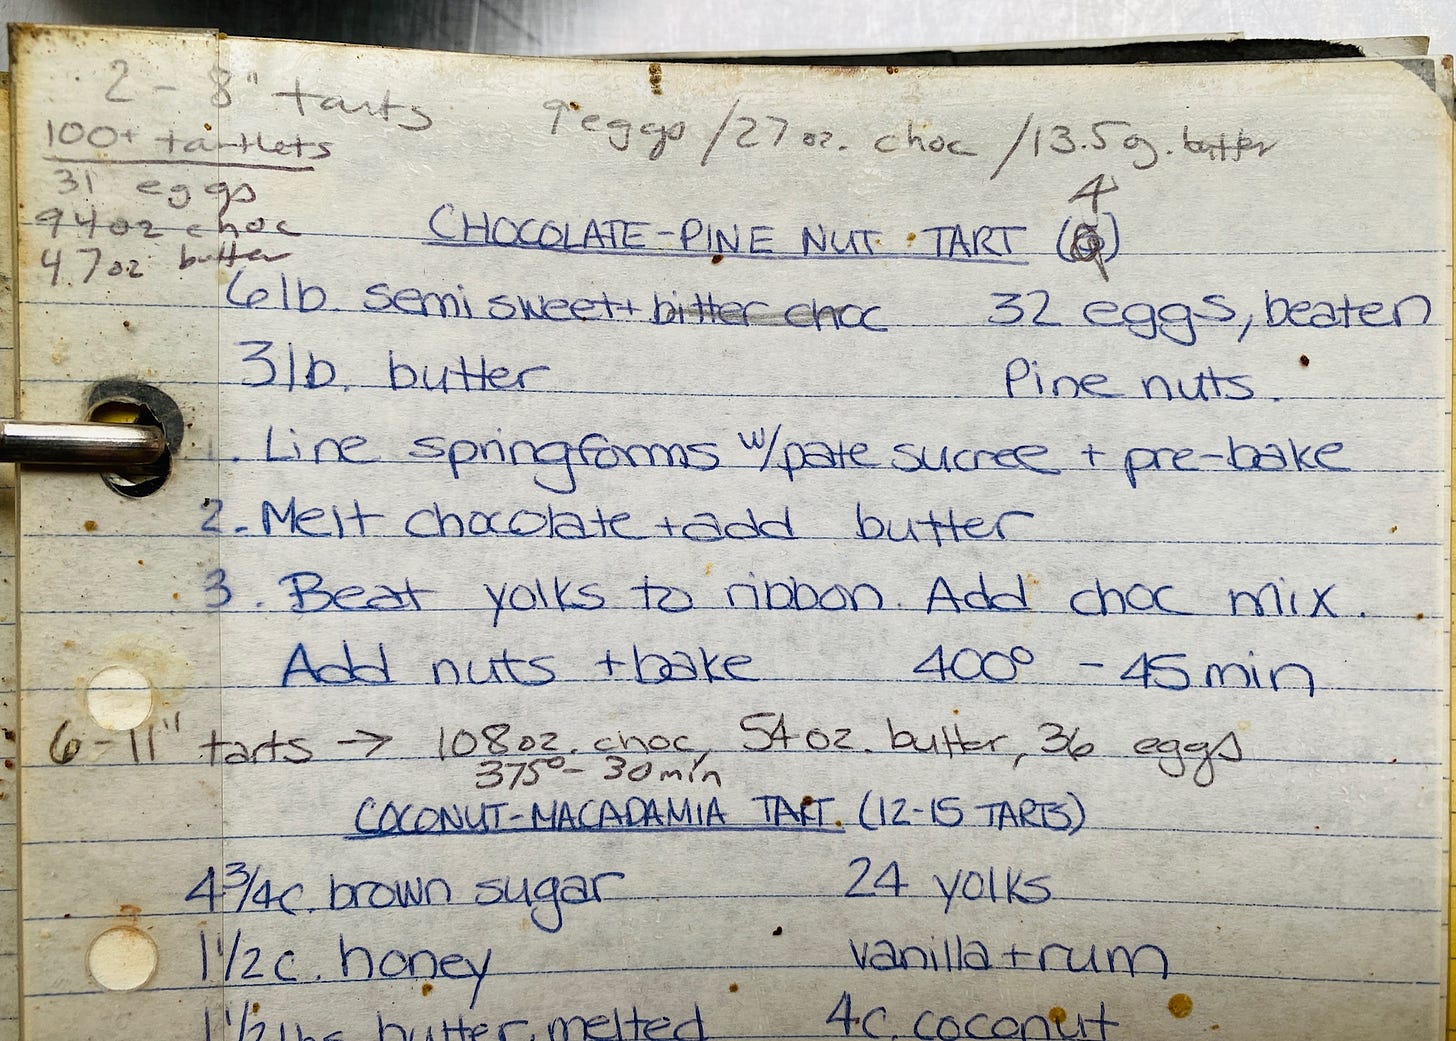 2 - 8" tarts
9 eggs / 27 oz. choc / 13.5 oz. butter
100+ tartlets
31 eggs
94oz choc
47oz butter
4
CHOCOLATE-PINE NUT TART ( )
6lb. semisweet + bitter choc 32 eggs, beaten
3lb. butter Pine nuts.
1. Line springforms w/pate sucree + pre-bake
2. Melt chocolate + add butter
3. Beat yolks to ribbon. Add choc mix.
Add nuts + bake 400° - 45 min
6-11" tarts → 108oz. choc, 54oz. butter, 36 eggs
375° - 30 min
COCONUT-MACADAMIA TART. (12-15 TARTS)
4 3/4c. brown sugar 24 yolks
1 1/2 c. honey vanilla + rum
1 1/2 lbs butter, melted 4c. coconut